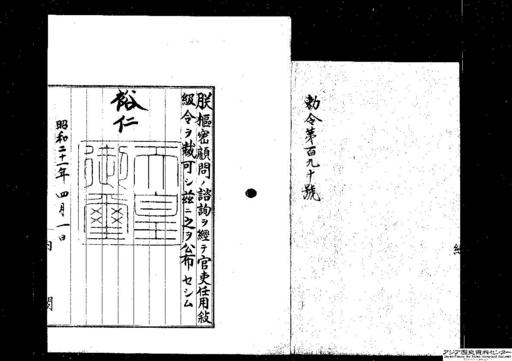 勅令第百九十號
朕樞密顧問ノ諮詢ヲ經テ官吏任用敍
級令ヲ裁可シ茲ニ之ヲ公布セシム
裕仁
天皇御璽
昭和二十一年四月一日
内閣
アジア歴史資料センター